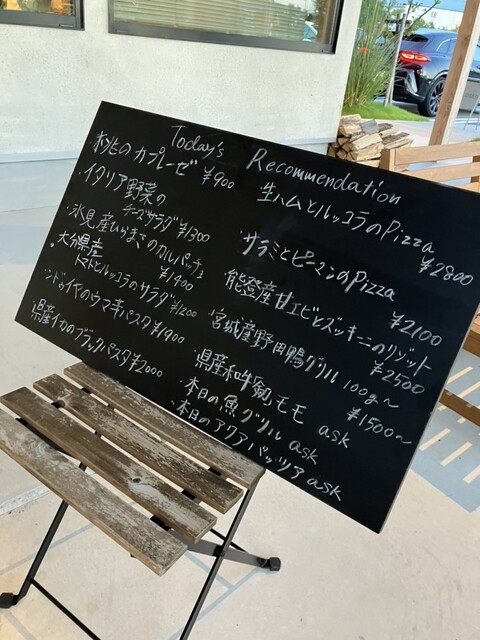 Today's Recommendation
桃のカプレーゼ ¥900
・イタリア野菜の
チーズサラダ ¥1300
・氷見産ひらまさのカルパッチョ
¥1400
・大分県産
トマトとルッコラのサラダ ¥1200
・ンドゥイヤのウマ辛パスタ ¥1900
県産イカのブラックパスタ ¥2000
生ハムとルッコラのPizza
¥2800
・サラミとピーマンのPizza
¥2100
能登産甘エビとズッキーニのリゾット
¥2500
・宮城産野田鴨グリル 100g〜
¥1500〜
・県産和牛 モモ ask
・本日の魚グリル ask
・本日のアクアパッツア ask